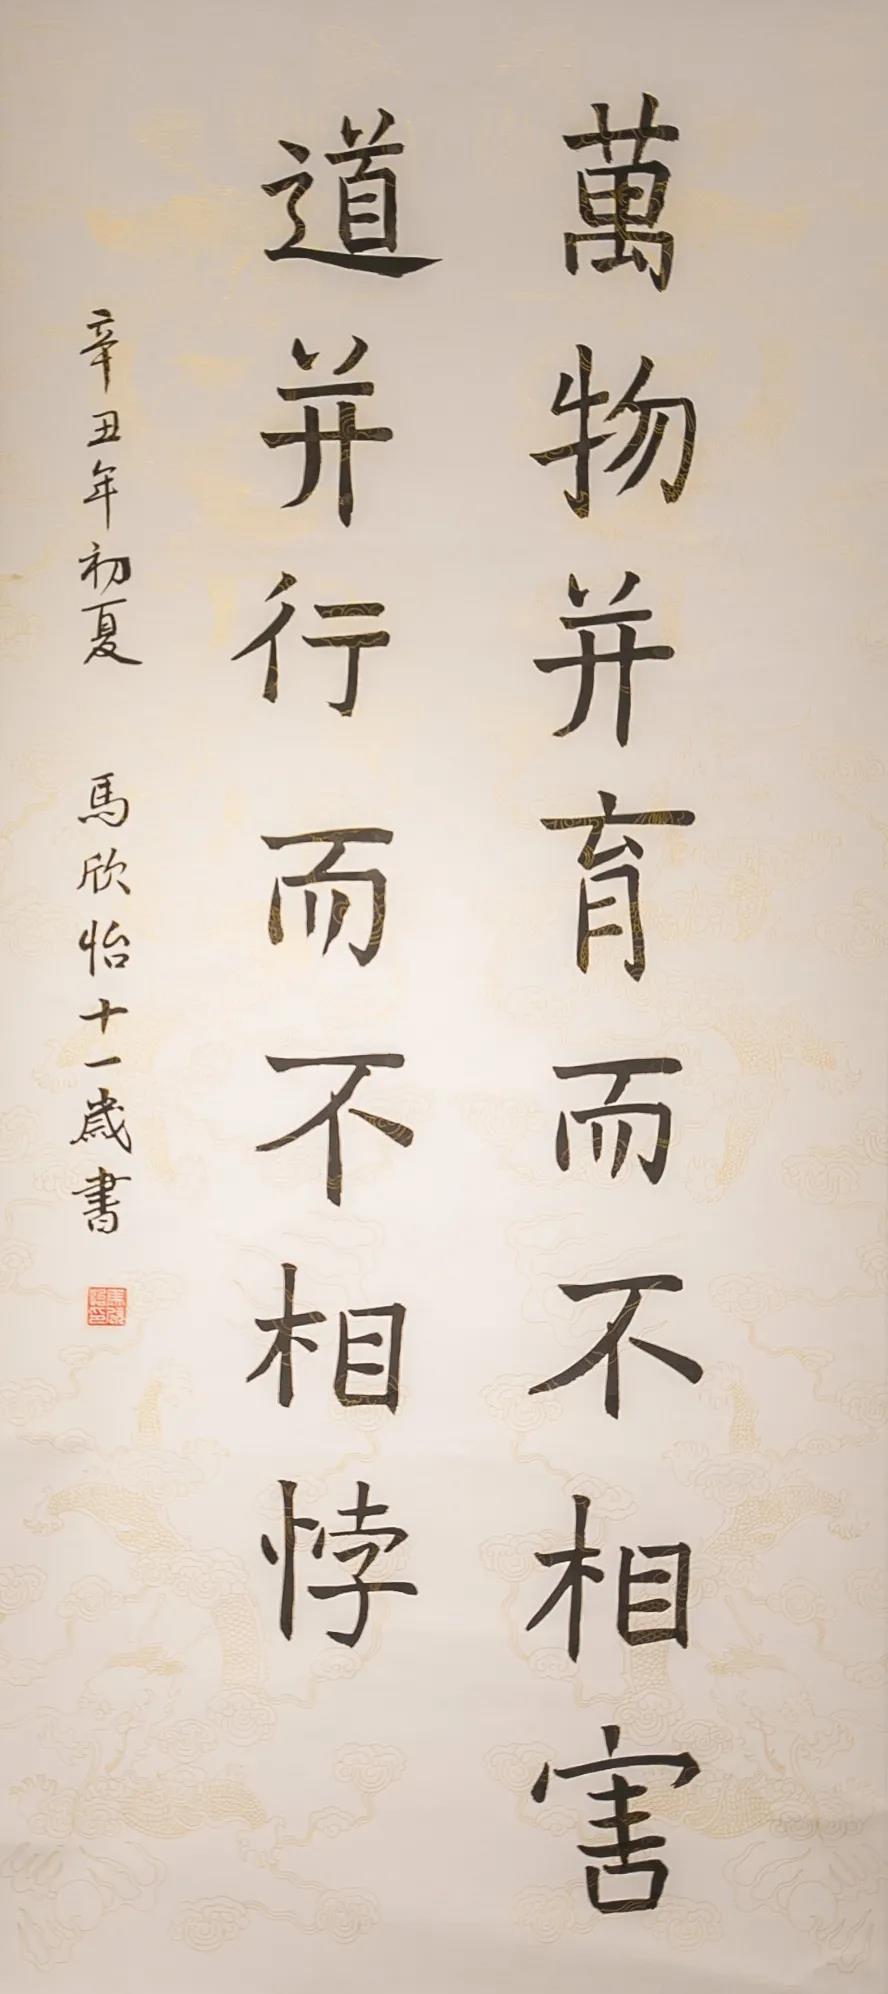 萬物并育而不相害
道并行而不相悖
辛丑年初夏 馬欣怡十一歲書